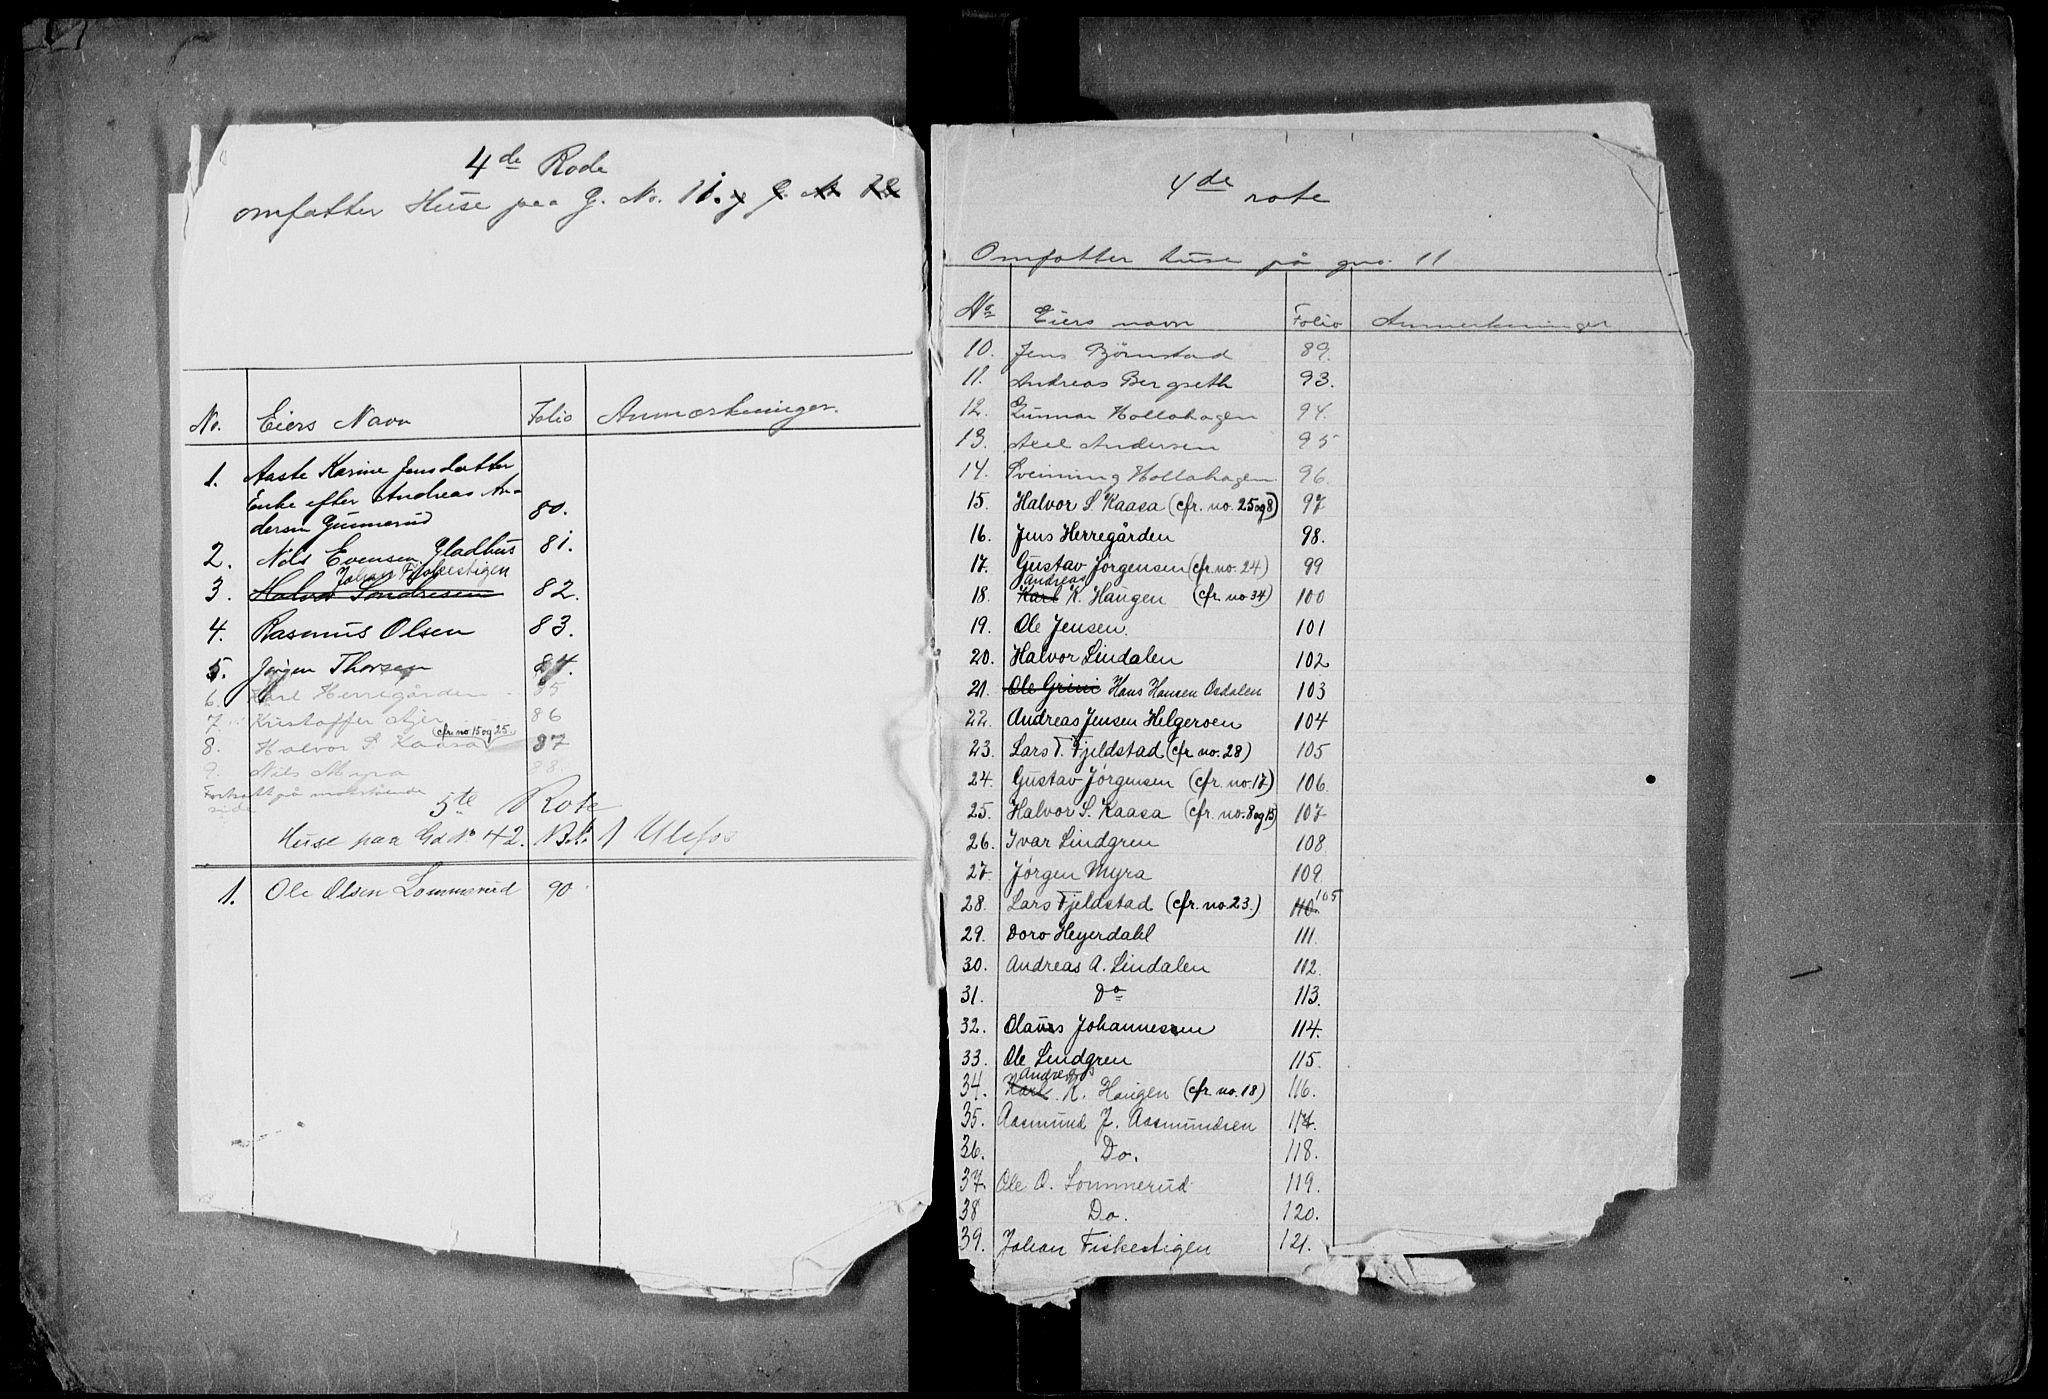 4de Rode
omfatter Huse paa G. No. 11. g G. No 22
No. Eiers Navn Folio Anmærkninger.
1. Aaste Karine Jensdatter
Enke efter Andreas An-
dersen Gunnerud 80.
2. Nils Evensen Gladhus 81.
Johan Fiskestigen
3. Halvor Sondresen 82.
4. Rasmus Olsen 83.
5. Jørgen Thorsen 84.
6. Karl Herregården 85
7. Kristoffer Ajer 86
8. Halvor S. Kaasa (cfr. no. 15 og 25.) 87
9. Nils Myra 88.
Fortsatt på motstående
side
5te Rote
Huse paa Gd No 42. 1 Ulefos
1. Ole Olsen Lommerud 90
4de rote
Omfatter huse på gno. 11
No Eiers navn Folio Anmerkninger
10. Jens Bjørnstad 89.
11. Andreas Bergseth 93.
12. Gunnar Hollahagen 94.
13. Axel Andersen 95
14. Sveinung Hollahagen 96.
15. Halvor S. Kaasa (cfr. no. 25 og 8) 97
16. Jens Herregården 98.
17. Gustav Jørgensen (cfr. no. 24) 99
Andreas
18. Karl K. Haugen (cfr. no 34) 100
19. Ole Jensen. 101
20. Halvor Lindalen 102
21. Ole Grini Hans Hansen Osdalen 103
22. Andreas Jensen Helgeroen 104
23. Lars T. Fjeldstad (cfr. no. 28) 105
24. Gustav Jørgensen (cfr. no. 17) 106.
25. Halvor S. Kaasa (cfr. no. 8 og 15) 107
26. Ivar Lindgren 108
27. Jørgen Myra 109.
28. Lars Fjeldstad (cfr. no. 23.) 110. 105
29. Doro Heyerdahl 111.
30. Andreas A. Lindalen 112.
31. Do 113.
32. Olaus Johannesen 114.
33. Ole Lindgren 115.
Andreas
34. Karl K. Haugen (cfr. no. 18) 116.
35. Aasmund J. Aasmundsen 117.
36. Do. 118.
37 Ole O. Lommerud 119.
38 Do. 120.
39. Johan Fiskestigen 121.